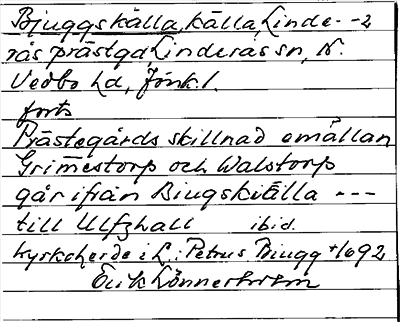 Bjuggskälla, källa, Linde- -2
rås prästgd, Linderås sn, N.
Vedbo hd, Jönk. l.
forts
Prästegårds skillnad emällan
Grimestorp och Walstorp
går ifrån Biugskiälla ---
till Ulfzhall ibid.
kyrkoherde i L.: Petrus Biugg †1692
Erik Lönnerholm